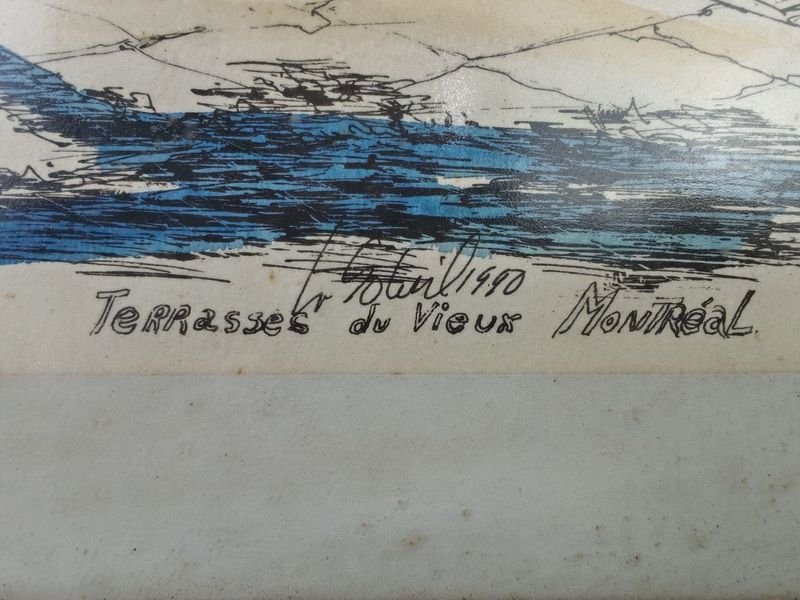 Soleil 1990
Terrasses du Vieux Montréal